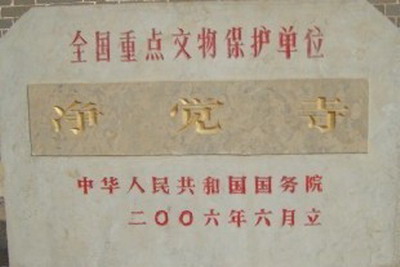 全国重点文物保护单位
净觉寺
中华人民共和国国务院
二〇〇六年六月立